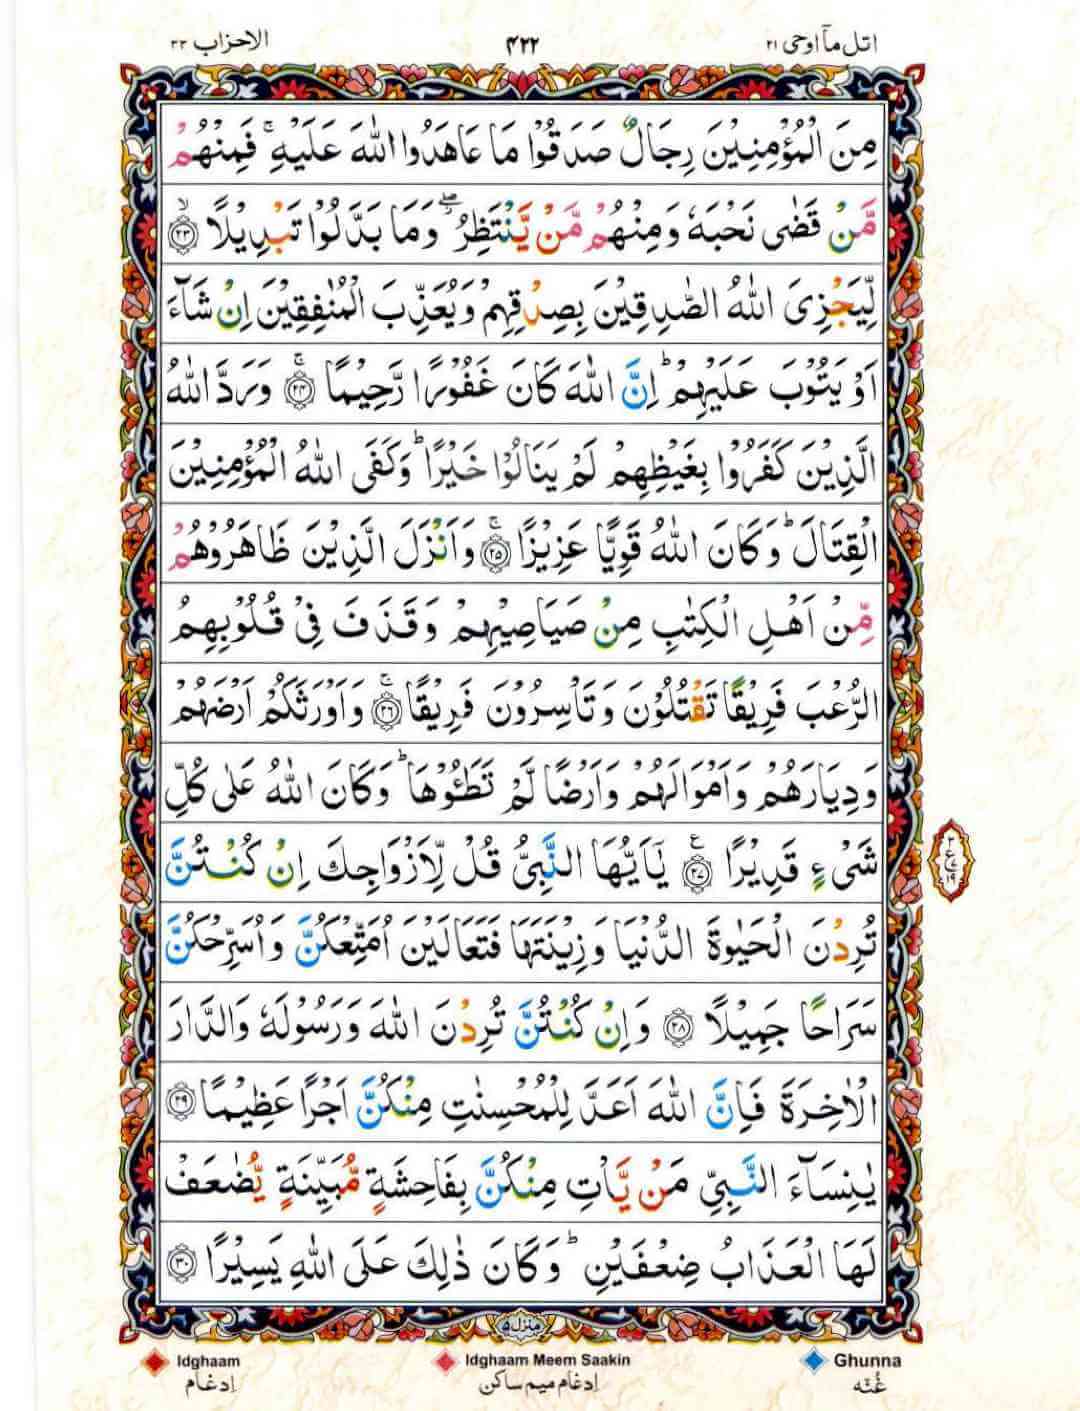 اتل مآ اوحی ۲۱ ۴۲۲ الاحزاب ۳۳
مِنَ الْمُؤْمِنِيْنَ رِجَالٌ صَدَقُوْا مَا عَاهَدُوا اللّٰهَ عَلَيْهِ ۚ فَمِنْهُمْ
مَّنْ قَضٰى نَحْبَهٗ وَمِنْهُمْ مَّنْ يَّنْتَظِرُ ۖ وَمَا بَدَّلُوْا تَبْدِيْلًا ۙ ﴿۲۳﴾
لِّيَجْزِىَ اللّٰهُ الصّٰدِقِيْنَ بِصِدْقِهِمْ وَيُعَذِّبَ الْمُنٰفِقِيْنَ اِنْ شَآءَ
اَوْ يَتُوْبَ عَلَيْهِمْ ؕ اِنَّ اللّٰهَ كَانَ غَفُوْرًا رَّحِيْمًا ۚ ﴿۲۴﴾ وَرَدَّ اللّٰهُ
الَّذِيْنَ كَفَرُوْا بِغَيْظِهِمْ لَمْ يَنَالُوْا خَيْرًا ؕ وَكَفَى اللّٰهُ الْمُؤْمِنِيْنَ
الْقِتَالَ ؕ وَكَانَ اللّٰهُ قَوِيًّا عَزِيْزًا ۚ ﴿۲۵﴾ وَاَنْزَلَ الَّذِيْنَ ظَاهَرُوْهُمْ
مِّنْ اَهْلِ الْكِتٰبِ مِنْ صَيَاصِيْهِمْ وَقَذَفَ فِيْ قُلُوْبِهِمُ
الرُّعْبَ فَرِيْقًا تَقْتُلُوْنَ وَتَاْسِرُوْنَ فَرِيْقًا ۚ ﴿۲۶﴾ وَاَوْرَثَكُمْ اَرْضَهُمْ
وَدِيَارَهُمْ وَاَمْوَالَهُمْ وَاَرْضًا لَّمْ تَطَـُٔوْهَا ؕ وَكَانَ اللّٰهُ عَلٰى كُلِّ
شَىْءٍ قَدِيْرًا ﴿۲۷﴾ ع يٰۤاَيُّهَا النَّبِىُّ قُلْ لِّاَزْوَاجِكَ اِنْ كُنْتُنَّ
تُرِدْنَ الْحَيٰوةَ الدُّنْيَا وَزِيْنَتَهَا فَتَعَالَيْنَ اُمَتِّعْكُنَّ وَاُسَرِّحْكُنَّ
سَرَاحًا جَمِيْلًا ﴿۲۸﴾ وَاِنْ كُنْتُنَّ تُرِدْنَ اللّٰهَ وَرَسُوْلَهٗ وَالدَّارَ
الْاٰخِرَةَ فَاِنَّ اللّٰهَ اَعَدَّ لِلْمُحْسِنٰتِ مِنْكُنَّ اَجْرًا عَظِيْمًا ﴿۲۹﴾
يٰنِسَآءَ النَّبِىِّ مَنْ يَّاْتِ مِنْكُنَّ بِفَاحِشَةٍ مُّبَيِّنَةٍ يُّضٰعَفْ
لَهَا الْعَذَابُ ضِعْفَيْنِ ؕ وَكَانَ ذٰلِكَ عَلَى اللّٰهِ يَسِيْرًا ﴿۳۰﴾
منزل ۵
Idghaam Idghaam Meem Saakin Ghunna
اِدغَام اِدغام میم ساکن غُنّه